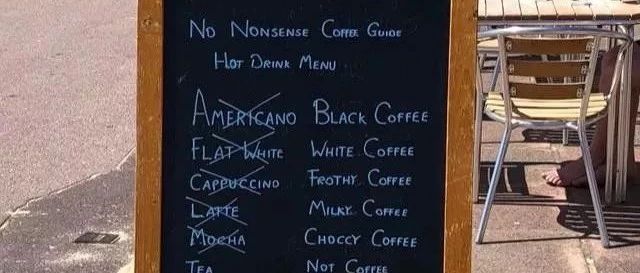 No Nonsense Coffee Guide
Hot Drink Menu
Americano Black Coffee
Flat White White Coffee
Cappuccino Frothy Coffee
Latte Milky Coffee
Mocha Choccy Coffee
Tea Not Coffee